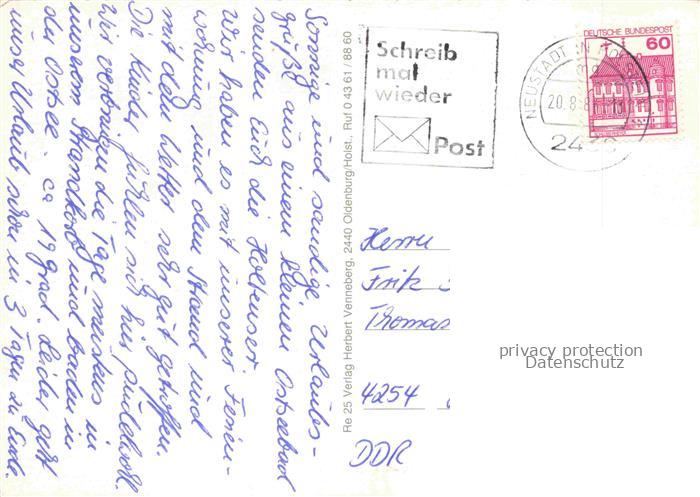 Sonnige und sandige Urlaubs-
grüße aus einem kleinen Ostseebad
senden Euch die Holtenser.
Wir haben es mit unserer Ferien-
wohnung und dem Strand und
mit dem Wetter sehr gut getroffen.
Die Kinder fühlen sich hier pudelwohl.
Wir verbringen die Tage meistens in
unserem Strandkorb und baden in
der Ostsee. ca 19 Grad. Leider geht
unser Urlaub schon in 3 Tagen zu Ende.
Re 25 Verlag Herbert Venneberg, 2440 Oldenburg/Holst., Ruf 0 43 61 / 88 60
Schreib
mal
wieder
Post
NEUSTADT IN HO
20.8.8
24
DEUTSCHE BUNDESPOST
60
Herrn
Fritz
Thomas
4254
DDR
privacy protection
Datenschutz